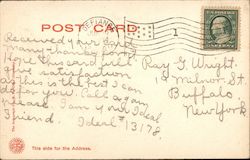 POST CARD
DEFIANCE
1
Received your card
many thanks for it
Hope this card will
give satisfaction
as this is the best I can
do for you. Call again
please. I am your Ideal
Friend. Ideal #13178.
Ray G. Wright.
Milnor St.
Buffalo,
New York
This side for the Address.